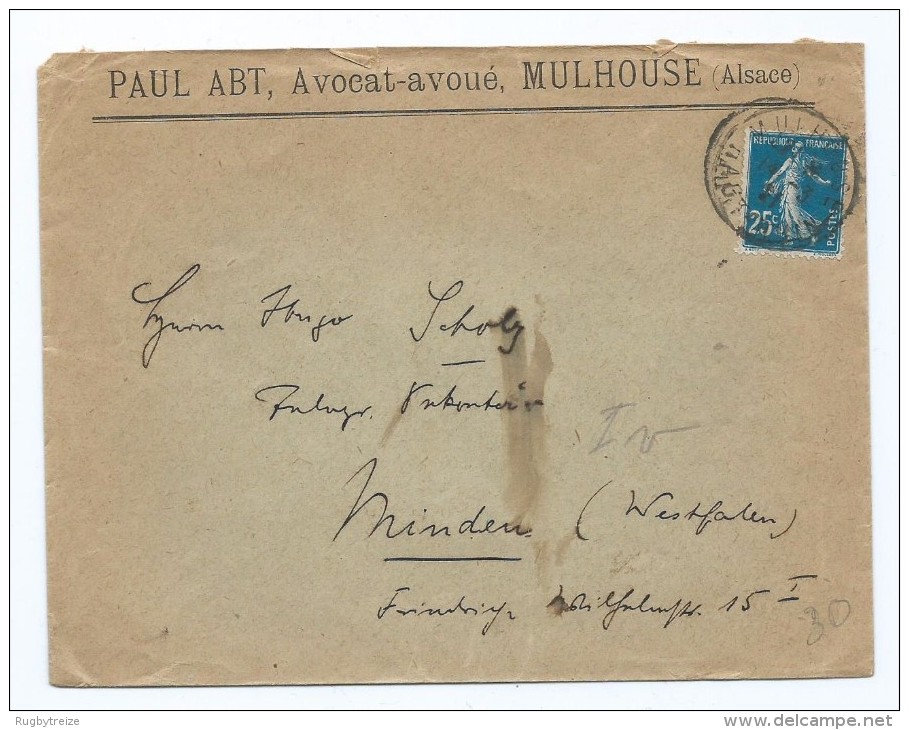 PAUL ABT, Avocat-avoué, MULHOUSE (Alsace)
REPUBLIQUE FRANCAISE
25c
POSTES
Herrn Hugo Scholz
I v
Minden (Westfalen)
Friedrich Wilhelmstr. 15 I
30
Rugbytreize
www.delcampe.net